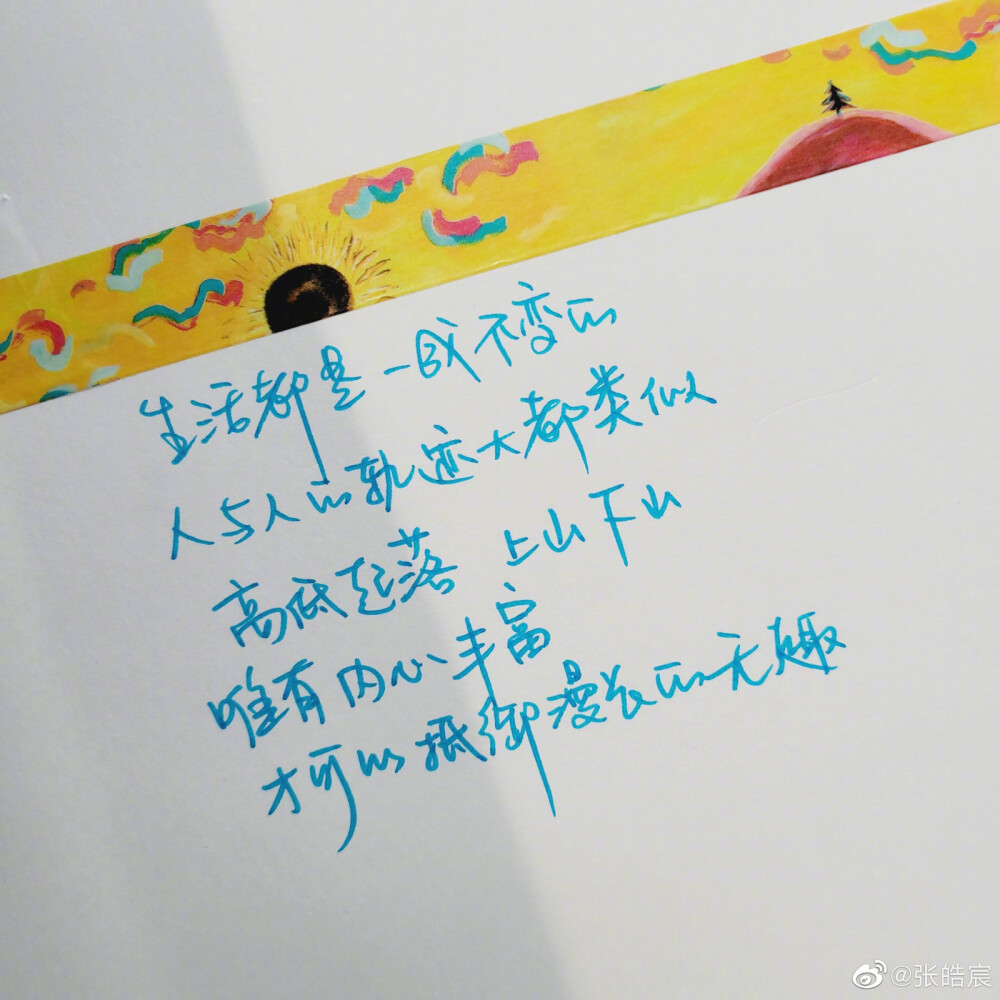 生活都是一成不变的
人与人的轨迹大都类似
高低起落 上山下山
唯有内心丰富
才可以抵御漫长的无趣
@张皓宸